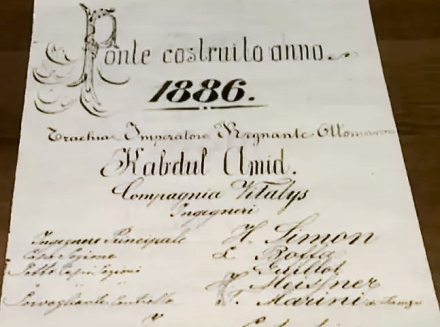 Ponte costruito anno
1886.
Trachia Imperatore Regnante Ottomano
Kabdul Amid.
Compagnia Vitalys
Ingegneri
Ingegnere Principale H. Simon
Capo Sezione L. Boffa
Sotto Capi Sezioni Guillot
Meissner
Sorvegliante Controllo P. Marini